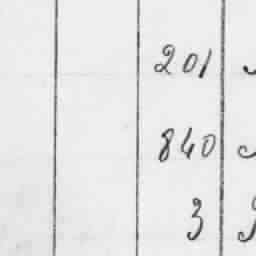 201
840
3